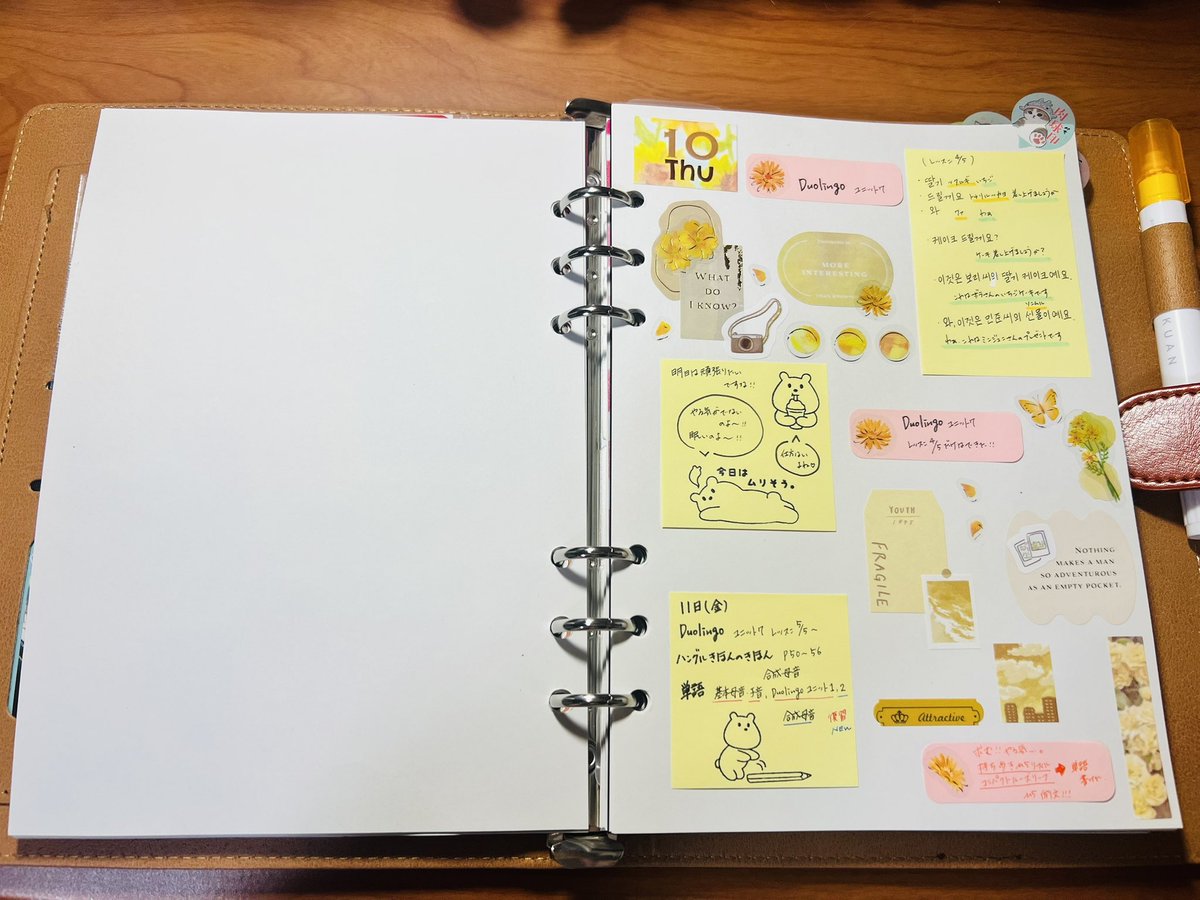 10
Thu
Duolingo ユニット7
(レッスン4/5)
・딸기 いちご
・드릴게요 差し上げましょうか
・와 わぁ
・케이크 드릴게요?
ケーキ差し上げましょうか?
・이것은 보리 씨의 딸기 케이크예요.
これはボリさんのいちごケーキです
・와, 이것은 민준 씨의 선물이에요.
わぁ、これはミンジュンさんのプレゼントです
WHAT
DO
I KNOW?
MORE
INTERESTING
明日は頑張りたい
ですね!!
やる気がでない
のよ〜!!
眠いのよ〜!!
仕方ない
よね
今日は
ムリそう。
Duolingo ユニット7
レッスン4/5だけはできた!!
YOUTH
FRAGILE
NOTHING
MAKES A MAN
SO ADVENTUROUS
AS AN EMPTY POCKET.
11日(金)
Duolingo ユニット7 レッスン5/5〜
ハングルきほんのきほん P50〜56
合成母音
単語 基本母音 子音, Duolingo ユニット1, 2
合成母音 復習
NEW
Attractive
求む!!やる気…。
単語
KUAN